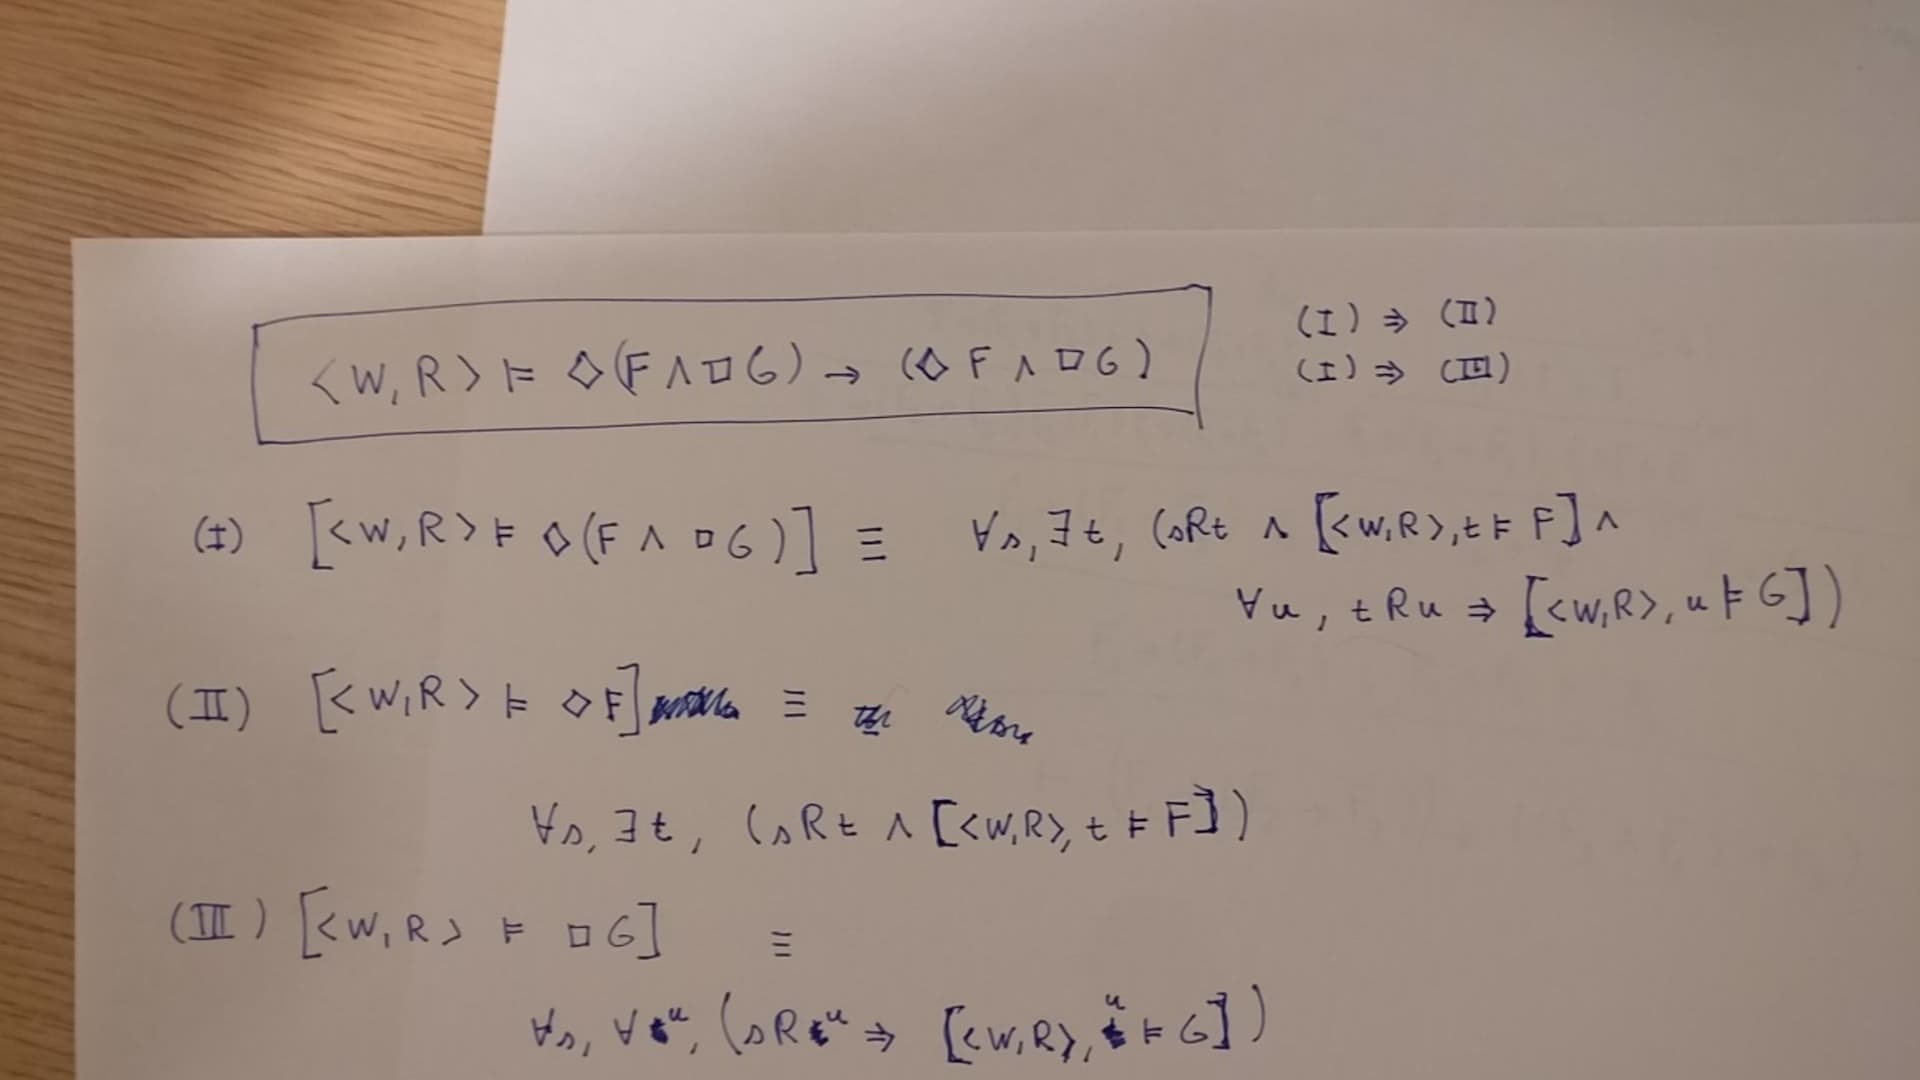 <W, R> ⊨ ◇(F ∧ □G) → (◇F ∧ □G)
(I) ⇒ (II)
(I) ⇒ (III)
(I) [<W, R> ⊨ ◇(F ∧ □G)] ≡ ∀s, ∃t, (sRt ∧ [<W,R>,t ⊨ F] ∧
∀u, tRu ⇒ [<W,R>, u ⊨ G])
(II) [<W,R> ⊨ ◇F] ≡
∀s, ∃t, (sRt ∧ [<W,R>, t ⊨ F])
(III) [<W, R> ⊨ □G] ≡
∀s, ∀u, (sRu ⇒ [<W,R>, u ⊨ G])